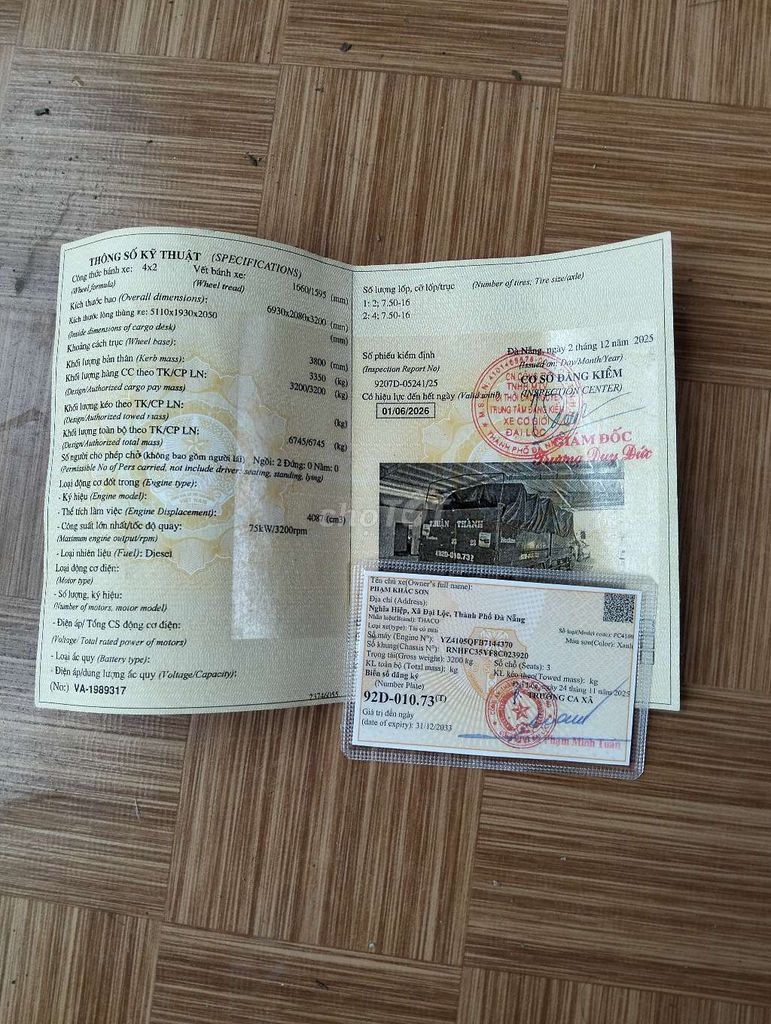 THÔNG SỐ KỸ THUẬT (SPECIFICATIONS)
Công thức bánh xe: 4x2 Vết bánh xe: 1660/1595 (mm)
(Wheel formula) (Wheel tread)
Kích thước bao (Overall dimensions): 6930x2080x3200 (mm)
Kích thước lòng thùng xe: 5110x1930x2050 (mm)
(Inside dimensions of cargo desk)
Khoảng cách trục (Wheel base): 3800 (mm)
Khối lượng bản thân (Kerb mass): 3350 (kg)
Khối lượng hàng CC theo TK/CP LN: 3200/3200 (kg)
(Design/Authorized cargo pay mass)
Khối lượng kéo theo TK/CP LN: (kg)
(Design/Authorized towed mass)
Khối lượng toàn bộ theo TK/CP LN: 6745/6745 (kg)
(Design/Authorized total mass)
Số người cho phép chở (không bao gồm người lái) Ngồi: 2 Đứng: 0 Nằm: 0
(Permissible No of Pers carried, not include driver: seating, standing, lying)
Loại động cơ đốt trong (Engine type):
- Ký hiệu (Engine model):
- Thể tích làm việc (Engine Displacement): 4087 (cm3)
- Công suất lớn nhất/tốc độ quay: 75kW/3200rpm
(Maximum engine output/rpm)
- Loại nhiên liệu (Fuel): Diesel
Loại động cơ điện:
(Motor type)
- Số lượng, ký hiệu:
(Number of motors, motor model)
- Điện áp/ Tổng CS động cơ điện:
(Voltage/ Total rated power of motors)
- Loại ắc quy (Battery type):
- Điện áp/dung lượng ắc quy (Voltage/Capacity):
(No:) VA-1989317
Số lượng lốp, cỡ lốp/trục (Number of tires; Tire size/axle)
1: 2; 7.50-16
2: 4; 7.50-16
Đà Nẵng, ngày 2 tháng 12 năm 2025
(Issued on: Day/Month/Year)
Số phiếu kiểm định
(Inspection Report No)
9207D-05241/25
CƠ SỞ ĐĂNG KIỂM
(INSPECTION CENTER)
Có hiệu lực đến hết ngày (Valid until)
01/06/2026
TRUNG TÂM ĐĂNG KIỂM
XE CƠ GIỚI
ĐẠI LỘC
GIÁM ĐỐC
Trương Duy Đức
THUẬN THÀNH
92D-010.73
chợTỐT
Tên chủ xe(Owner's full name):
PHẠM KHẮC SƠN
Địa chỉ (Address):
Nghĩa Hiệp, Xã Đại Lộc, Thành Phố Đà Nẵng
Nhãn hiệu(Brand): THACO
Loại xe(type): Tải có mui
Màu sơn(Color): Xanh
Số máy (Engine N°): YZ4105QFB7144370
Số khung(Chassis N°): RNHFC35VF8C023920
Trọng tải(Gross weight): 3200 kg
Số chỗ (Seats): 3
KL toàn bộ (Total mass): kg
KL kéo theo(Towed mass): kg
Biển số đăng ký
(Number Plate)
92D-010.73(T)
Đại Lộc, ngày 24 tháng 11 năm 2025
TRƯỞNG CA XÃ
Giá trị đến ngày
(date of expiry): 31/12/2033
Phạm Minh Tuấn